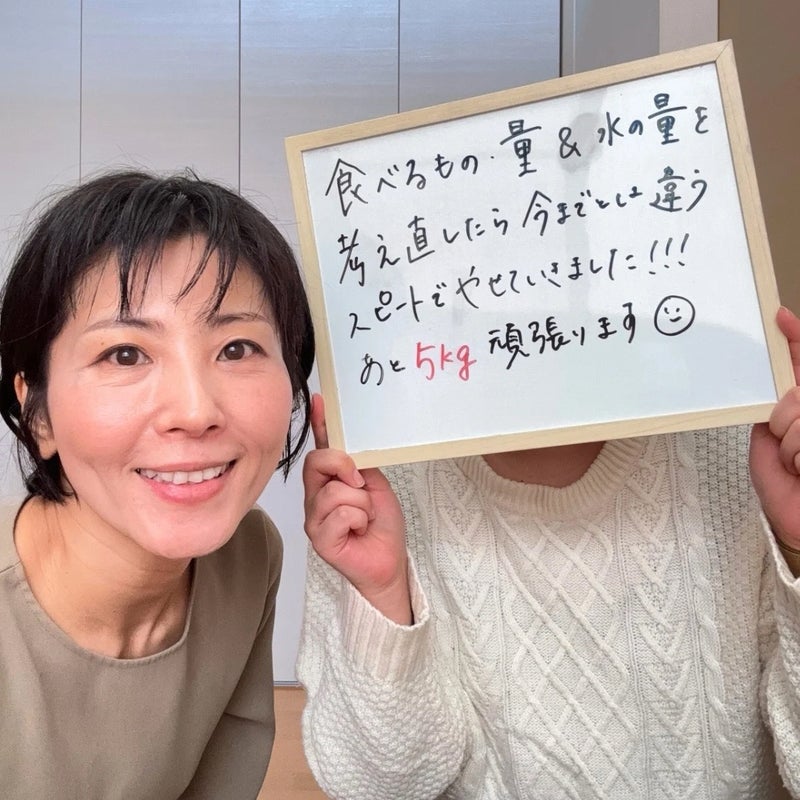 食べるもの・量 & 水の量を
考え直したら今までとは違う
スピードでやせていきました!!!
あと 5kg 頑張ります